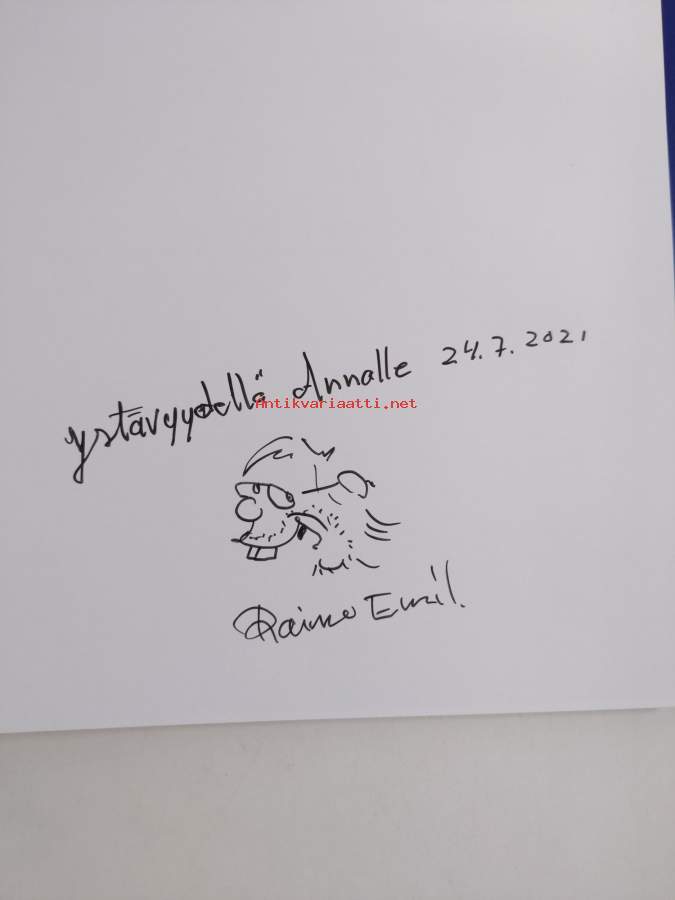 ystävyydellä Annalle 24.7.2021
Antikvariaatti.net
Raimo Emil.